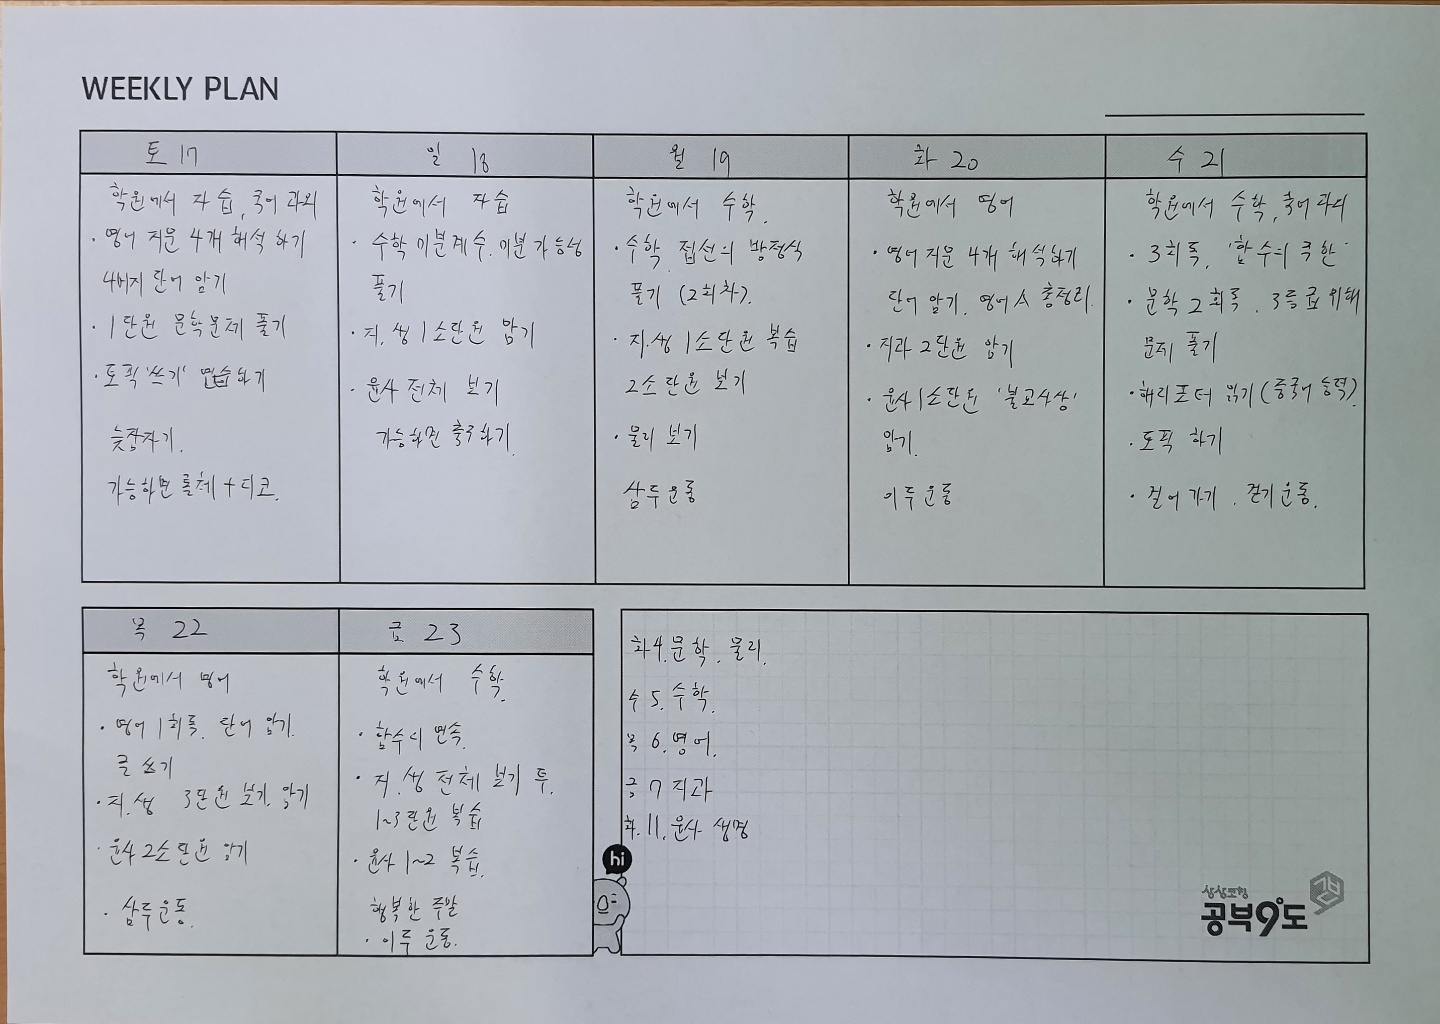 WEEKLY PLAN
토 17
학원에서 자습, 국어 과외
· 영어 지문 4개 해석하기
4버지 단어 암기
· 1단원 문학문제 풀기
· 토픽 '쓰기' 연습하기
늦잠자기.
가능하면 롤체 + 디코.
일 18
학원에서 자습
· 수학 미분계수. 미분가능성
풀기
· 지. 생 1소단원 암기
· 윤사 전체 보기
가능하면 축구하기.
월 19
학원에서 수학.
· 수학 접선의 방정식
풀기 (2회차).
· 지.생 1소단원 복습
2소단원 보기
· 물리 보기
삼두운동
화 20
학원에서 영어
· 영어지문 4개 해석하기
단어 암기. 영어A 총정리.
· 지과 2단원 암기
· 윤사1소단원 '불교사상'
암기.
이두운동
수 21
학원에서 수학, 국어과외
· 3회독, '함수의 극한'
· 문학 2회독. 3등급 위해
문제 풀기
· 해리포터 읽기 (중국어 능력).
· 토픽 하기
· 걸어가기. 걷기운동.
목 22
학원에서 영어
· 영어 1회독. 단어 암기.
글 쓰기
· 지.생 3단원 보기. 암기
· 윤사 2소단원 암기
· 삼두운동.
금 23
학원에서 수학.
· 함수의 연속.
· 지.생 전체 보기 후.
1~3단원 복습
· 윤사 1~2 복습.
행복한 주말
· 이두 운동.
화4. 문학. 물리.
수 5. 수학.
목 6. 영어.
금 7 지과
화. 11. 윤사 생명
hi
상상코칭
공부9도